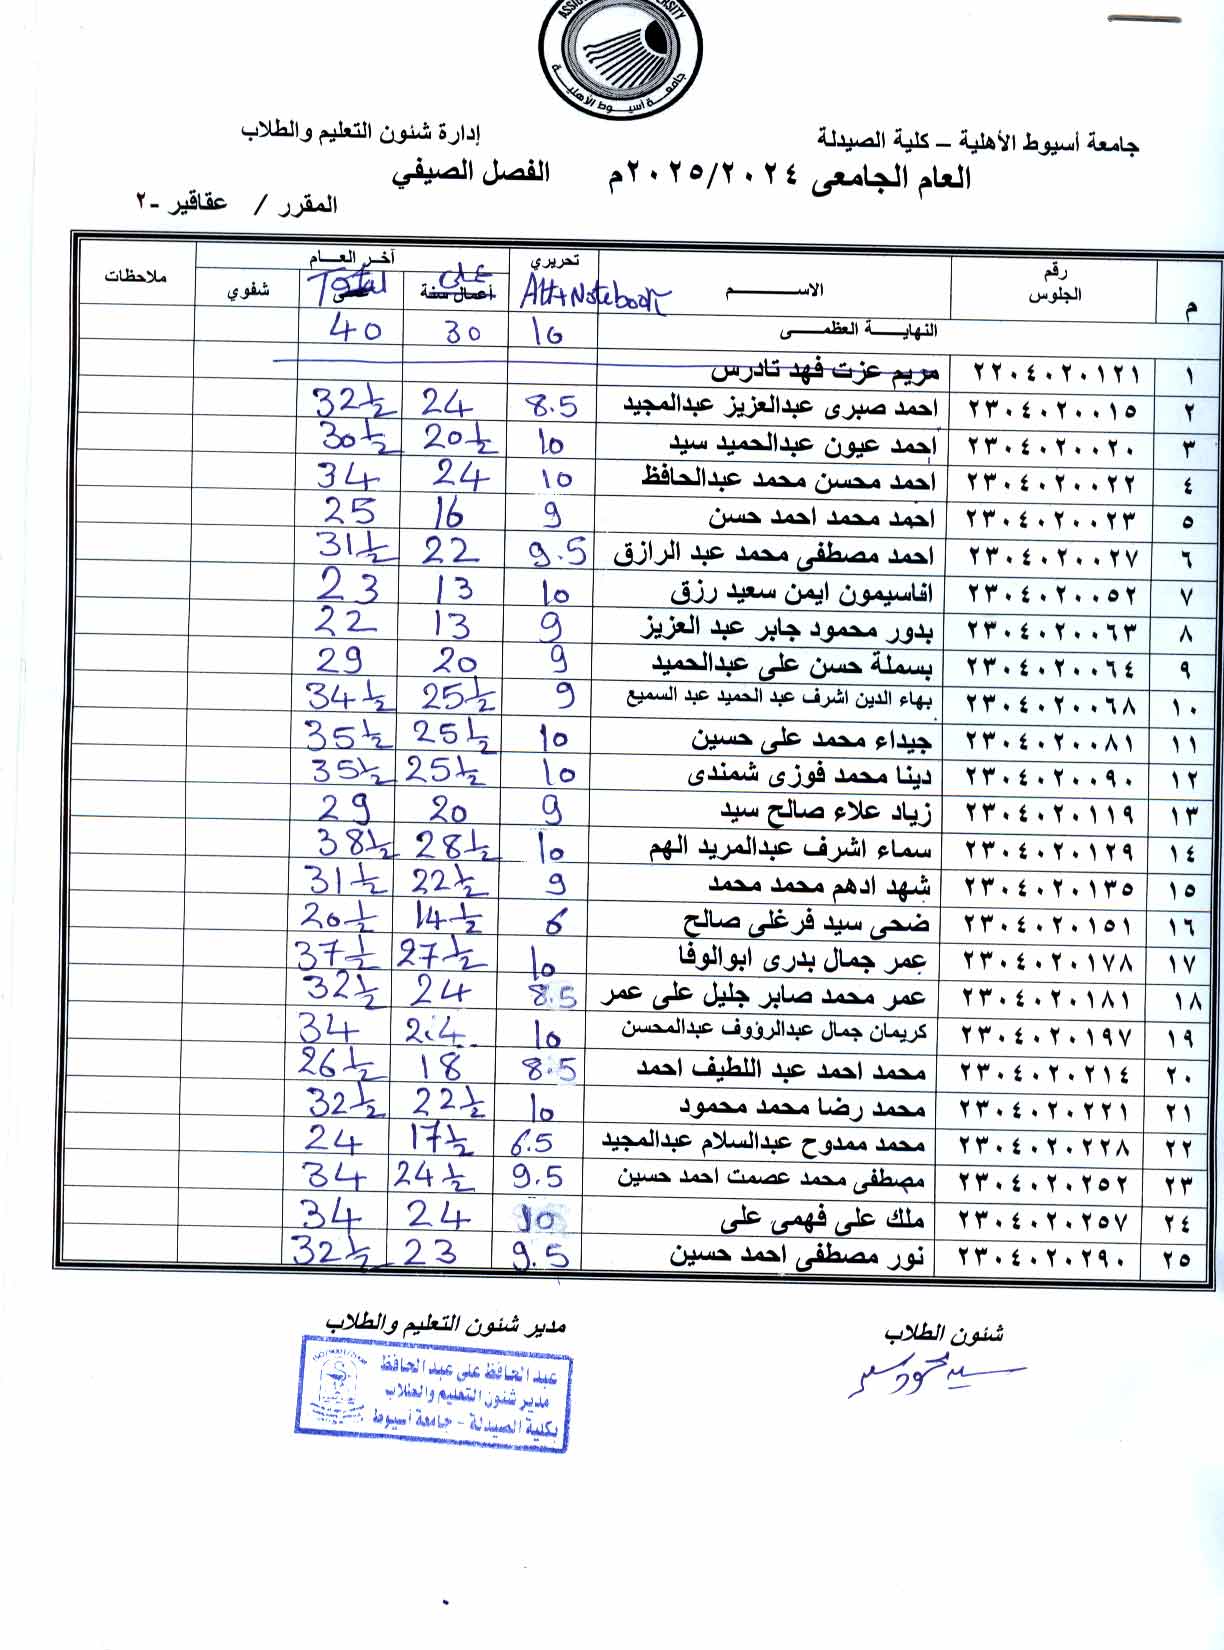 جامعة أسيوط الأهلية
جامعة أسيوط الأهلية – كلية الصيدلة إدارة شئون التعليم والطلاب
العام الجامعى ٢٠٢٥/٢٠٢٤م الفصل الصيفي
المقرر / عقاقير -٢
م رقم الجلوس الاســـم تحريري Att+Notebook آخر العـــام أعمال سنة عملى Total شفوي ملاحظات
النهايـــة العظمـــى 10 30 40
١ ٢٢٠٤٠٢٠١٢١ مريم عزت فهد تادرس
٢ ٢٣٠٤٠٢٠٠١٥ احمد صبرى عبدالعزيز عبدالمجيد 8.5 24 32½
٣ ٢٣٠٤٠٢٠٠٢٠ احمد عيون عبدالحميد سيد 10 20½ 30½
٤ ٢٣٠٤٠٢٠٠٢٢ احمد محسن محمد عبدالحافظ 10 24 34
٥ ٢٣٠٤٠٢٠٠٢٣ احمد محمد احمد حسن 9 16 25
٦ ٢٣٠٤٠٢٠٠٢٧ احمد مصطفى محمد عبد الرازق 9.5 22 31½
٧ ٢٣٠٤٠٢٠٠٥٢ افاسيمون ايمن سعيد رزق 10 13 23
٨ ٢٣٠٤٠٢٠٠٦٣ بدور محمود جابر عبد العزيز 9 13 22
٩ ٢٣٠٤٠٢٠٠٦٤ بسملة حسن على عبدالحميد 9 20 29
١٠ ٢٣٠٤٠٢٠٠٦٨ بهاء الدين اشرف عبد الحميد عبد السميع 9 25½ 34½
١١ ٢٣٠٤٠٢٠٠٨١ جيداء محمد على حسين 10 25½ 35½
١٢ ٢٣٠٤٠٢٠٠٩٠ دينا محمد فوزى شمندى 10 25½ 35½
١٣ ٢٣٠٤٠٢٠١١٩ زياد علاء صالح سيد 9 20 29
١٤ ٢٣٠٤٠٢٠١٢٩ سماء اشرف عبدالمريد الهم 10 28½ 38½
١٥ ٢٣٠٤٠٢٠١٣٥ شهد ادهم محمد محمد 9 22½ 31½
١٦ ٢٣٠٤٠٢٠١٥١ ضحى سيد فرغلى صالح 6 14½ 20½
١٧ ٢٣٠٤٠٢٠١٧٨ عمر جمال بدرى ابوالوفا 10 27½ 37½
١٨ ٢٣٠٤٠٢٠١٨١ عمر محمد صابر جليل على عمر 8.5 24 32½
١٩ ٢٣٠٤٠٢٠١٩٧ كريمان جمال عبدالرؤوف عبدالمحسن 10 24 34
٢٠ ٢٣٠٤٠٢٠٢١٤ محمد احمد عبد اللطيف احمد 8.5 18 26½
٢١ ٢٣٠٤٠٢٠٢٢١ محمد رضا محمد محمود 10 22½ 32½
٢٢ ٢٣٠٤٠٢٠٢٢٨ محمد ممدوح عبدالسلام عبدالمجيد 6.5 17½ 24
٢٣ ٢٣٠٤٠٢٠٢٥٢ مصطفى محمد عصمت احمد حسين 9.5 24½ 34
٢٤ ٢٣٠٤٠٢٠٢٥٧ ملك على فهمى على 10 24 34
٢٥ ٢٣٠٤٠٢٠٢٩٠ نور مصطفى احمد حسين 9.5 23 32½
شئون الطلاب مدير شئون التعليم والطلاب
عبد الحافظ على عبد الحافظ
مدير شئون التعليم والطلاب
بكلية الصيدلة - جامعة أسيوط